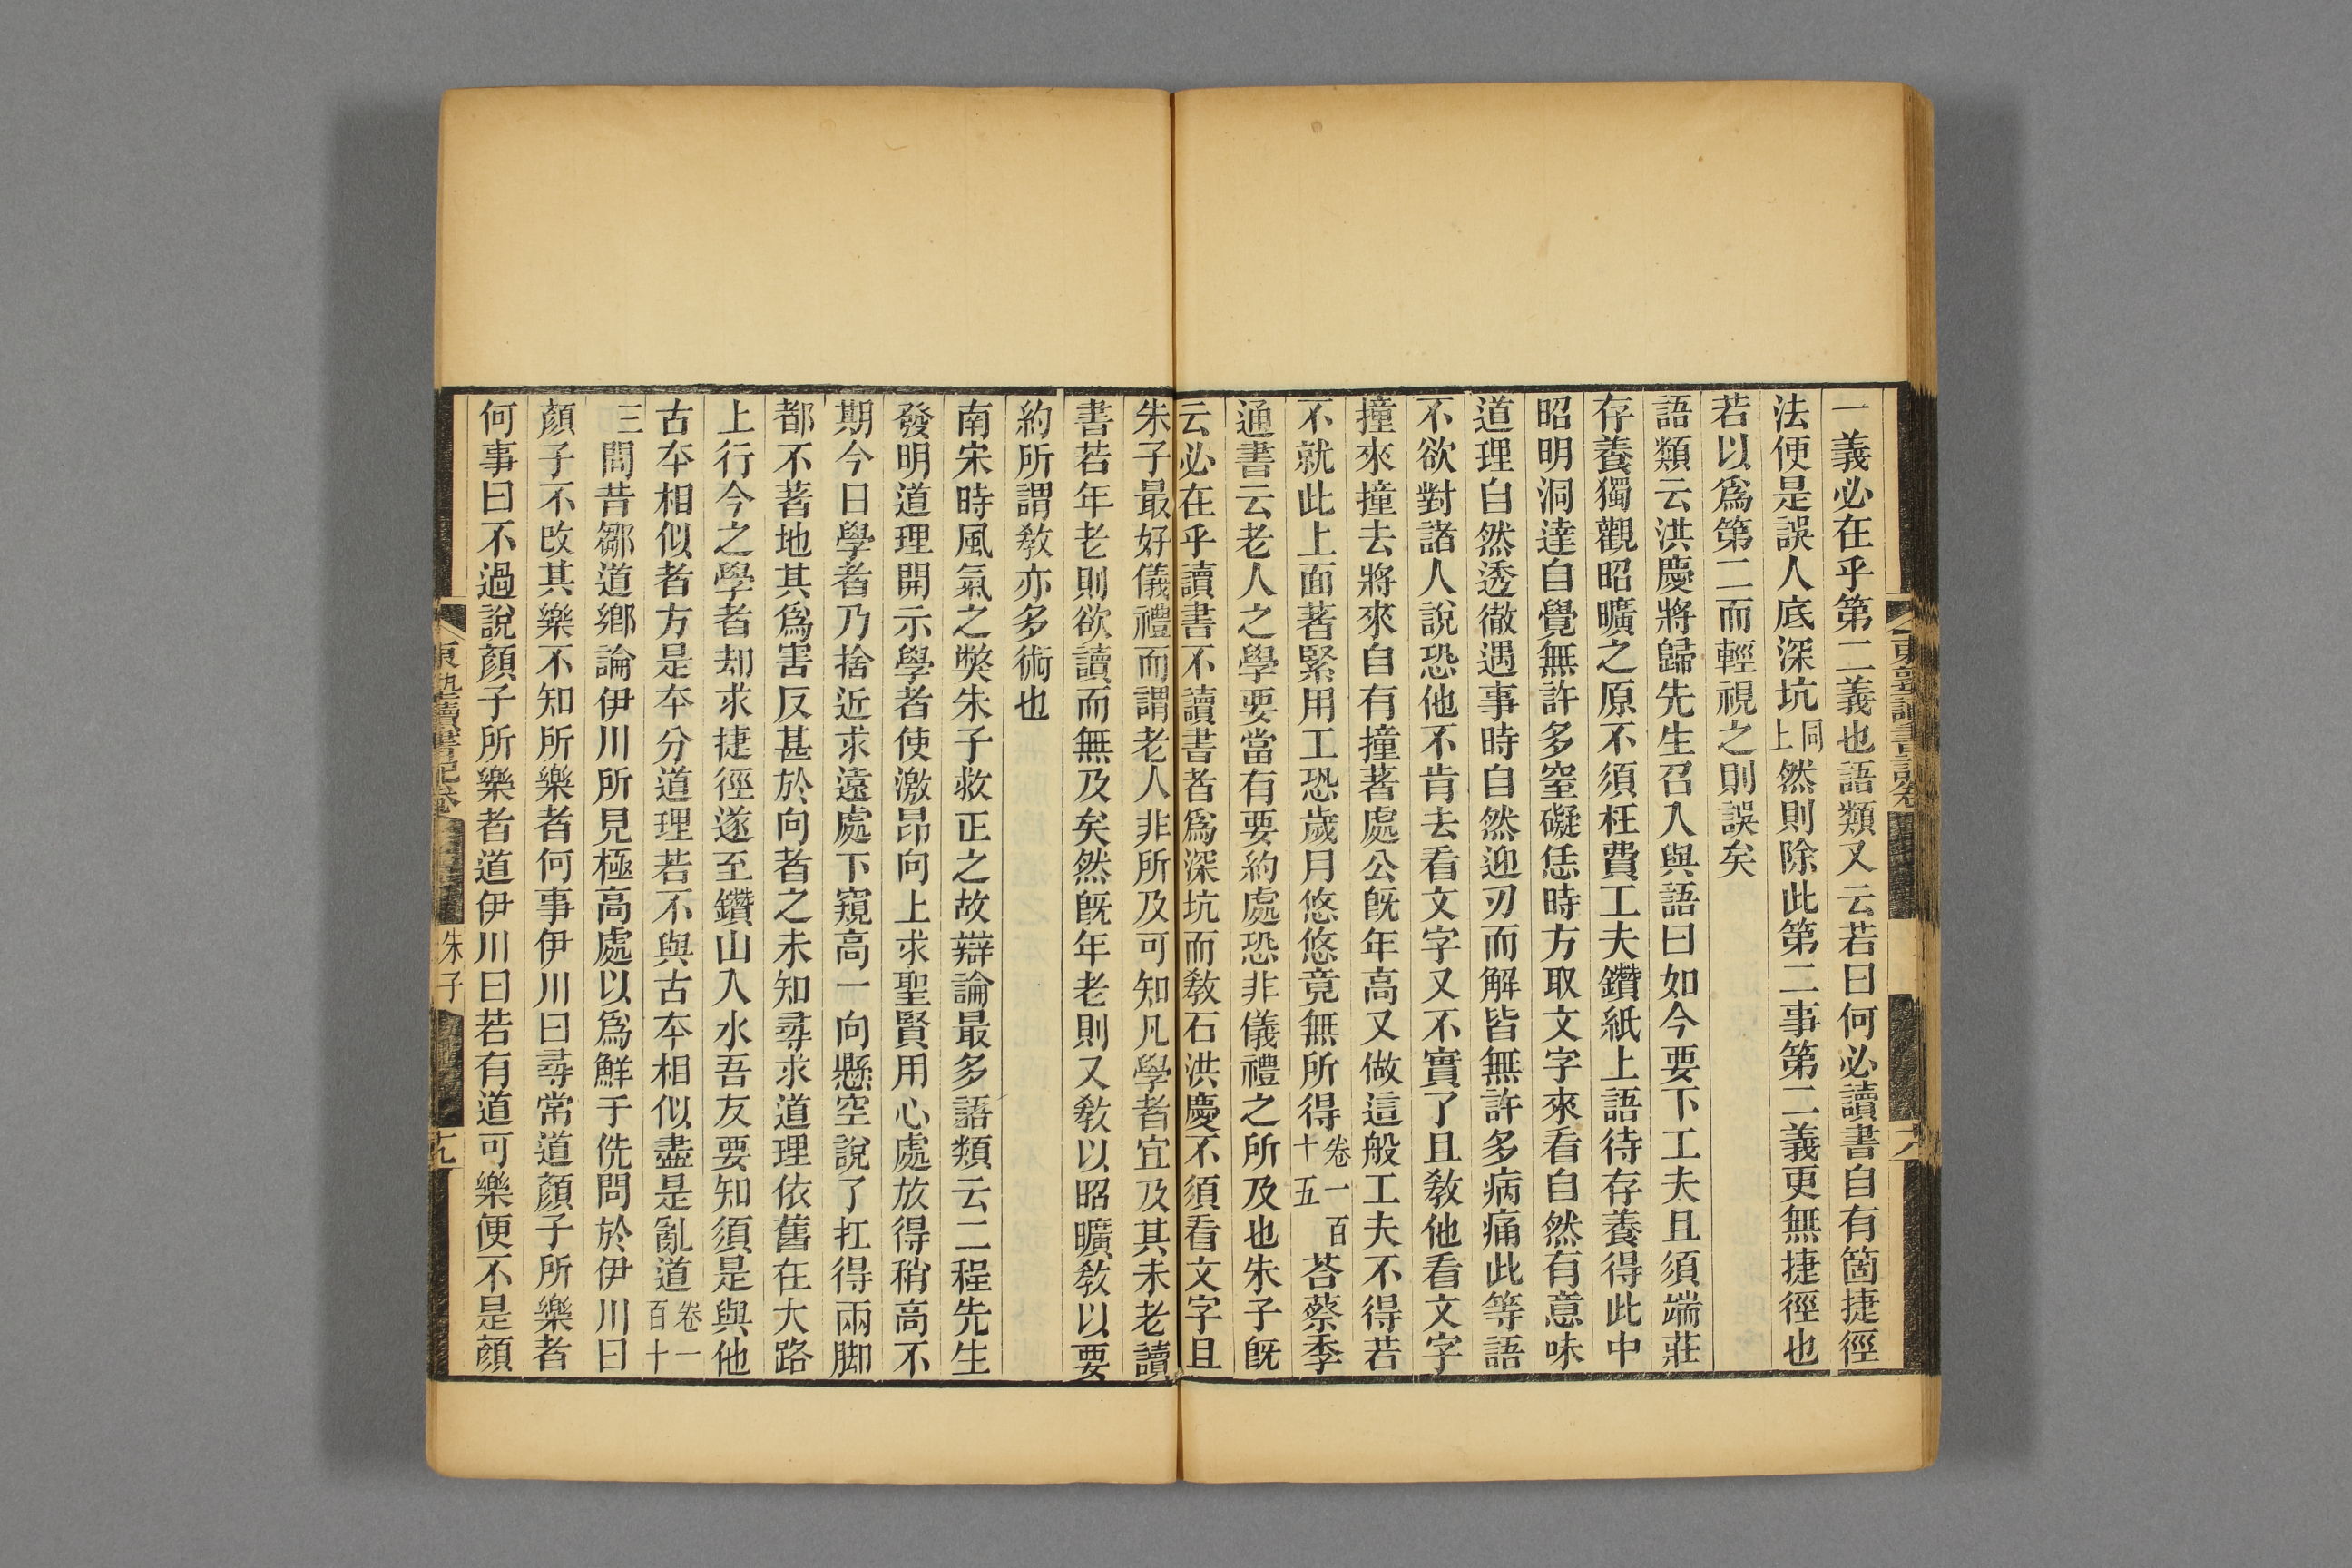 一義必在乎第二義也語類又云若曰何必讀書自有箇捷徑
法便是誤人底深坑同上然則除此第二事第二義更無捷徑也
若以爲第二而輕視之則誤矣
語類云洪慶將歸先生召入與語曰如今要下工夫且須端莊
存養獨觀昭曠之原不須枉費工夫鑽紙上語待存養得此中
昭明洞達自覺無許多窒礙恁時方取文字來看自然有意味
道理自然透徹遇事時自然迎刃而解皆無許多病痛此等語
不欲對諸人說恐他不肯去看文字又不實了且敎他看文字
撞來撞去將來自有撞著處公旣年高又做這般工夫不得若
不就此上面著緊用工恐歲月悠悠竟無所得卷一百十五荅蔡季
通書云老人之學要當有要約處恐非儀禮之所及也朱子旣
云必在乎讀書不讀書者爲深坑而敎石洪慶不須看文字且
朱子最好儀禮而謂老人非所及可知凡學者宜及其未老讀
書若年老則欲讀而無及矣然旣年老則又敎以昭曠敎以要
約所謂敎亦多術也
南宋時風氣之獘朱子救正之故辯論最多語類云二程先生
發明道理開示學者使激昂向上求聖賢用心處放得稍高不
期今日學者乃捨近求遠處下窺高一向懸空說了扛得兩脚
都不著地其爲害反甚於向者之未知尋求道理依舊在大路
上行今之學者却求捷徑遂至鑽山入水吾友要知須是與他
古本相似者方是本分道理若不與古本相似盡是亂道卷一百十
三 問昔鄒道鄕論伊川所見極高處以爲鮮于侁問於伊川曰
顏子不改其樂不知所樂者何事伊川曰尋常道顏子所樂者
何事曰不過說顏子所樂者道伊川曰若有道可樂便不是顏
東塾讀書記卷
朱子